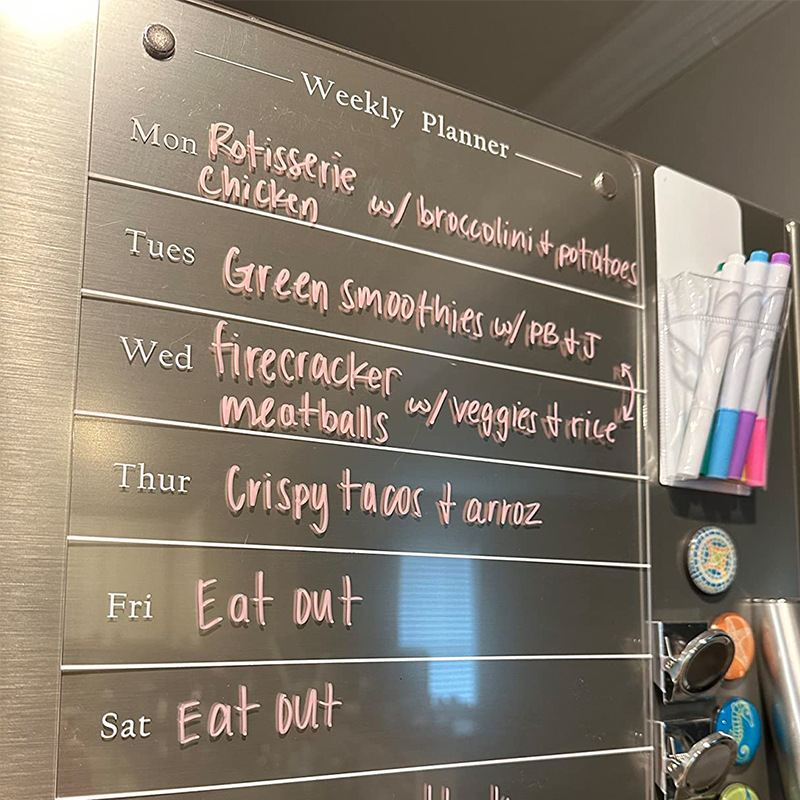 Weekly Planner
Mon Rotisserie
chicken w/ broccolini + potatoes
Tues Green smoothies w/ PB + J
Wed firecracker
meatballs w/ veggies + rice
Thur Crispy tacos + arroz
Fri Eat out
Sat Eat out